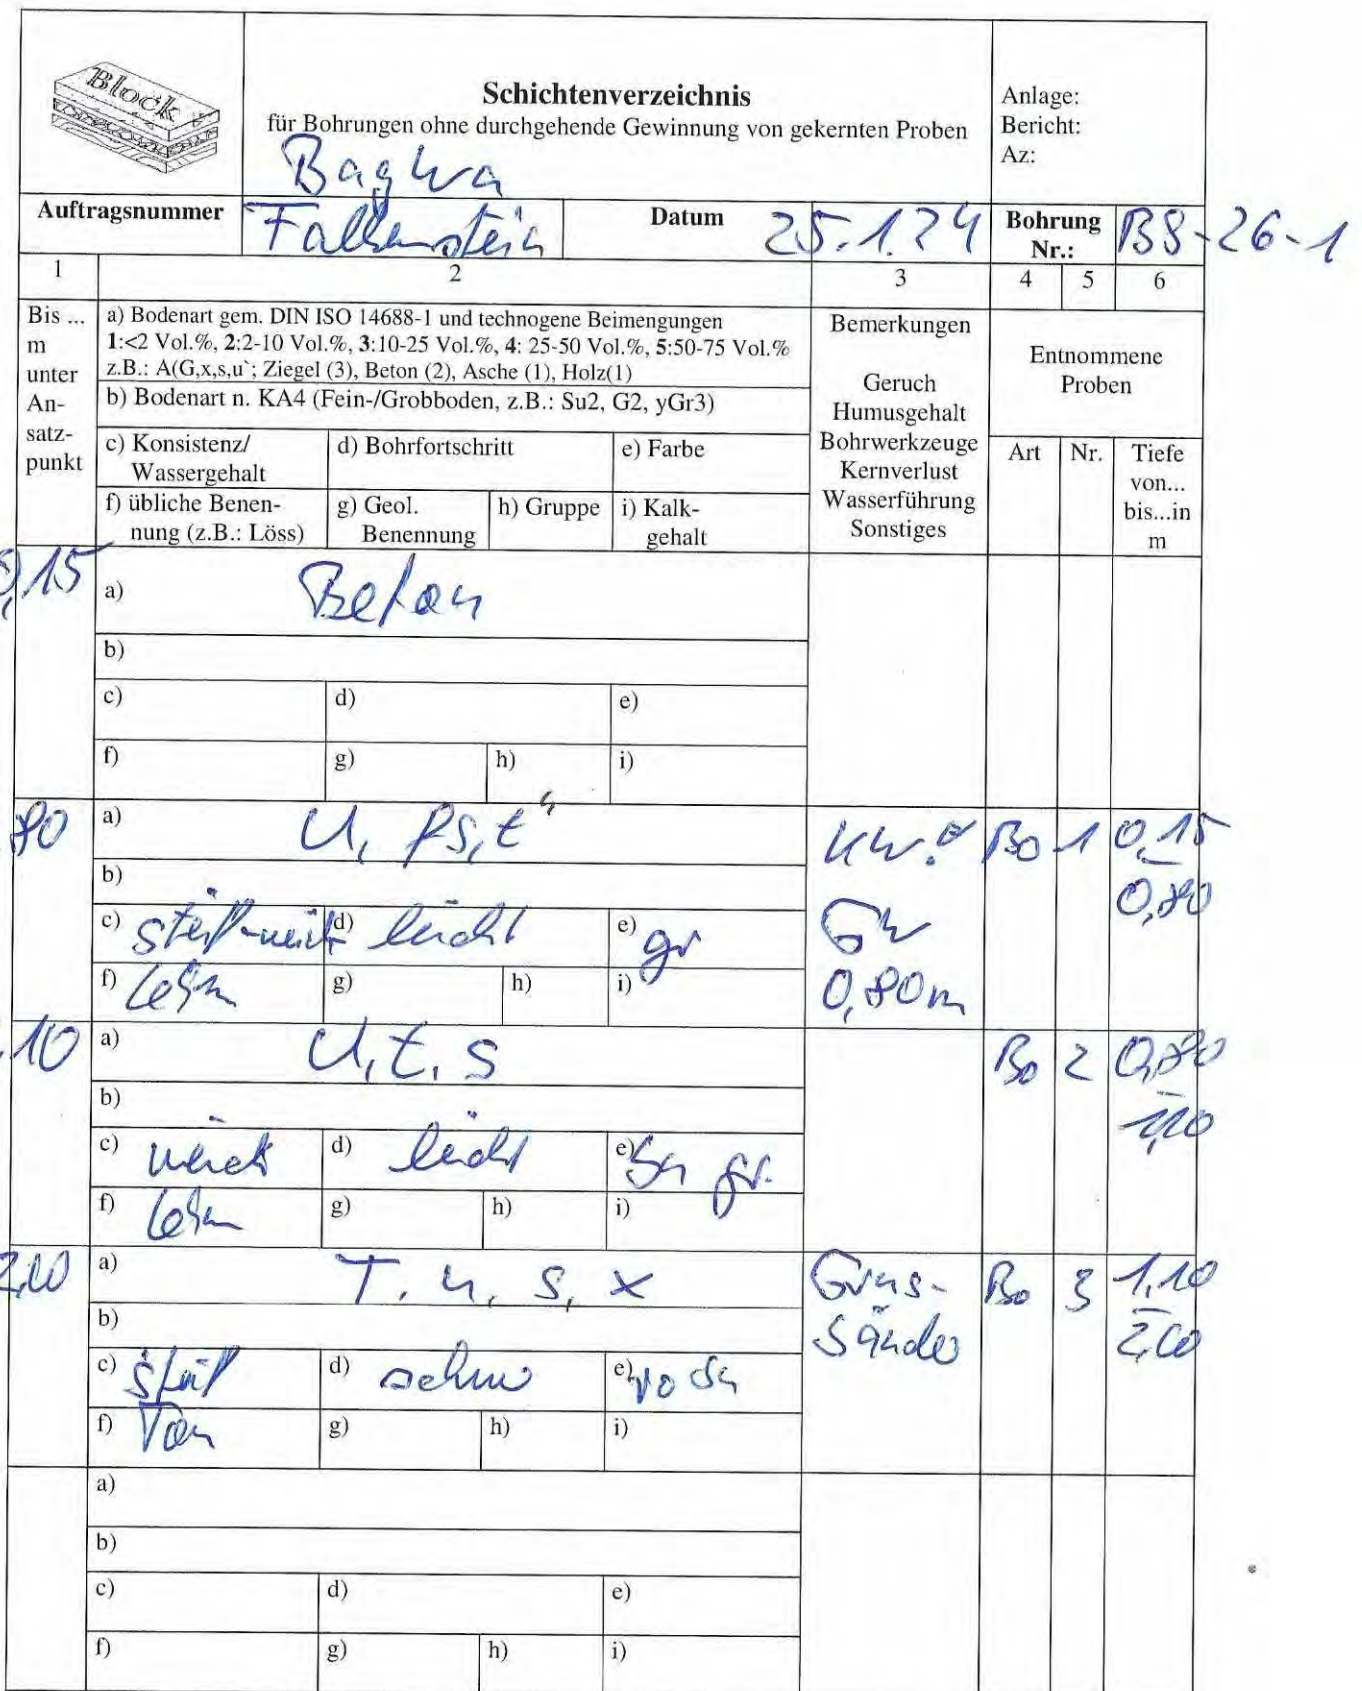 Block
Schichtenverzeichnis
für Bohrungen ohne durchgehende Gewinnung von gekernten Proben
Anlage:
Bericht:
Az:
Auftragsnummer
Falkenstein
Datum 25.1.24
Bohrung Nr.: BS-26-1
1 2 3 4 5 6
Bis ... m unter An-satz-punkt
a) Bodenart gem. DIN ISO 14688-1 und technogene Beimengungen
1:<2 Vol.%, 2:2-10 Vol.%, 3:10-25 Vol.%, 4: 25-50 Vol.%, 5:50-75 Vol.%
z.B.: A(G,x,s,u`; Ziegel (3), Beton (2), Asche (1), Holz(1)
b) Bodenart n. KA4 (Fein-/Grobboden, z.B.: Su2, G2, yGr3)
c) Konsistenz/ Wassergehalt
d) Bohrfortschritt
e) Farbe
f) übliche Benen-nung (z.B.: Löss)
g) Geol. Benennung
h) Gruppe
i) Kalk-gehalt
Bemerkungen
Geruch
Humusgehalt
Bohrwerkzeuge
Kernverlust
Wasserführung
Sonstiges
Entnommene Proben
Art
Nr.
Tiefe von... bis...in m
0,15
a) Beton
b)
c) d) e)
f) g) h) i)
80
a) U, fs, t"
b)
c) steif-weich d) leicht e) gr
f) Lehm g) h) i)
GW
0,80m
Bo 1 0,15
- 0,80
10
a) U, t, s
b)
c) weich d) leicht e) gr.
f) Lehm g) h) i)
Bo 2 0,80
- 1,10
2,00
a) T, u, s, x
b)
c) steif d) schw e)
f) Ton g) h) i)
Grus-
Sände
Bo 3 1,10
- 2,00
a)
b)
c) d) e)
f) g) h) i)